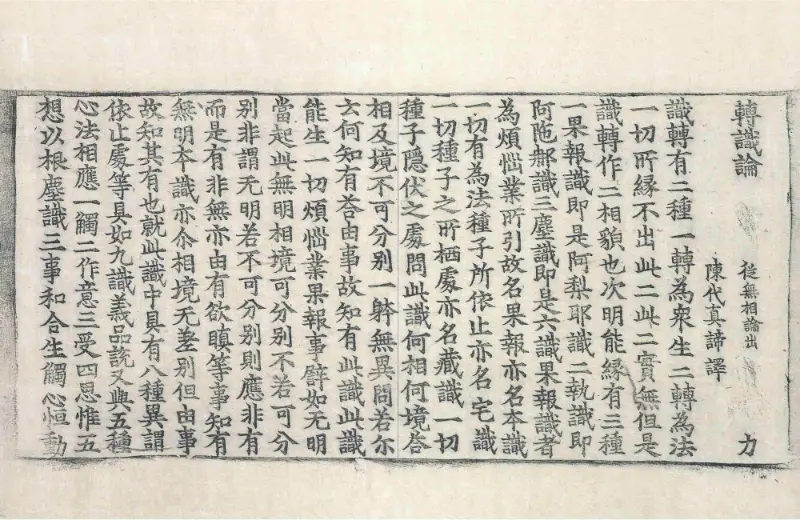 轉識論 從無相論出 力
陳代真諦譯
識轉有二種一轉為衆生二轉為法
一切所緣不出此二此二實無但是
識轉作二相貌也次明能緣有三種
一果報識即是阿梨耶識二執識即
阿陁那識三塵識即是六識果報識者
為煩惱業所引故名果報亦名本識
一切有為法種子所依止亦名宅識
一切種子之所栖處亦名藏識一切
種子隱伏之處問此識何相何境答
相及境不可分別一躰無異問若尒
云何知有荅由事故知有此識此識
能生一切煩惱業果報事譬如无明
當起此無明相境可分別不若可分
別非謂无明若不可分別則應非有
而是有非無亦由有欲瞋等事知有
無明本識亦尒相境无差別但由事
故知其有也就此識中具有八種異謂
依止處等具如九識義品說又與五種
心法相應一觸二作意三受四思惟五
想以根塵識三事和合生觸心恒動